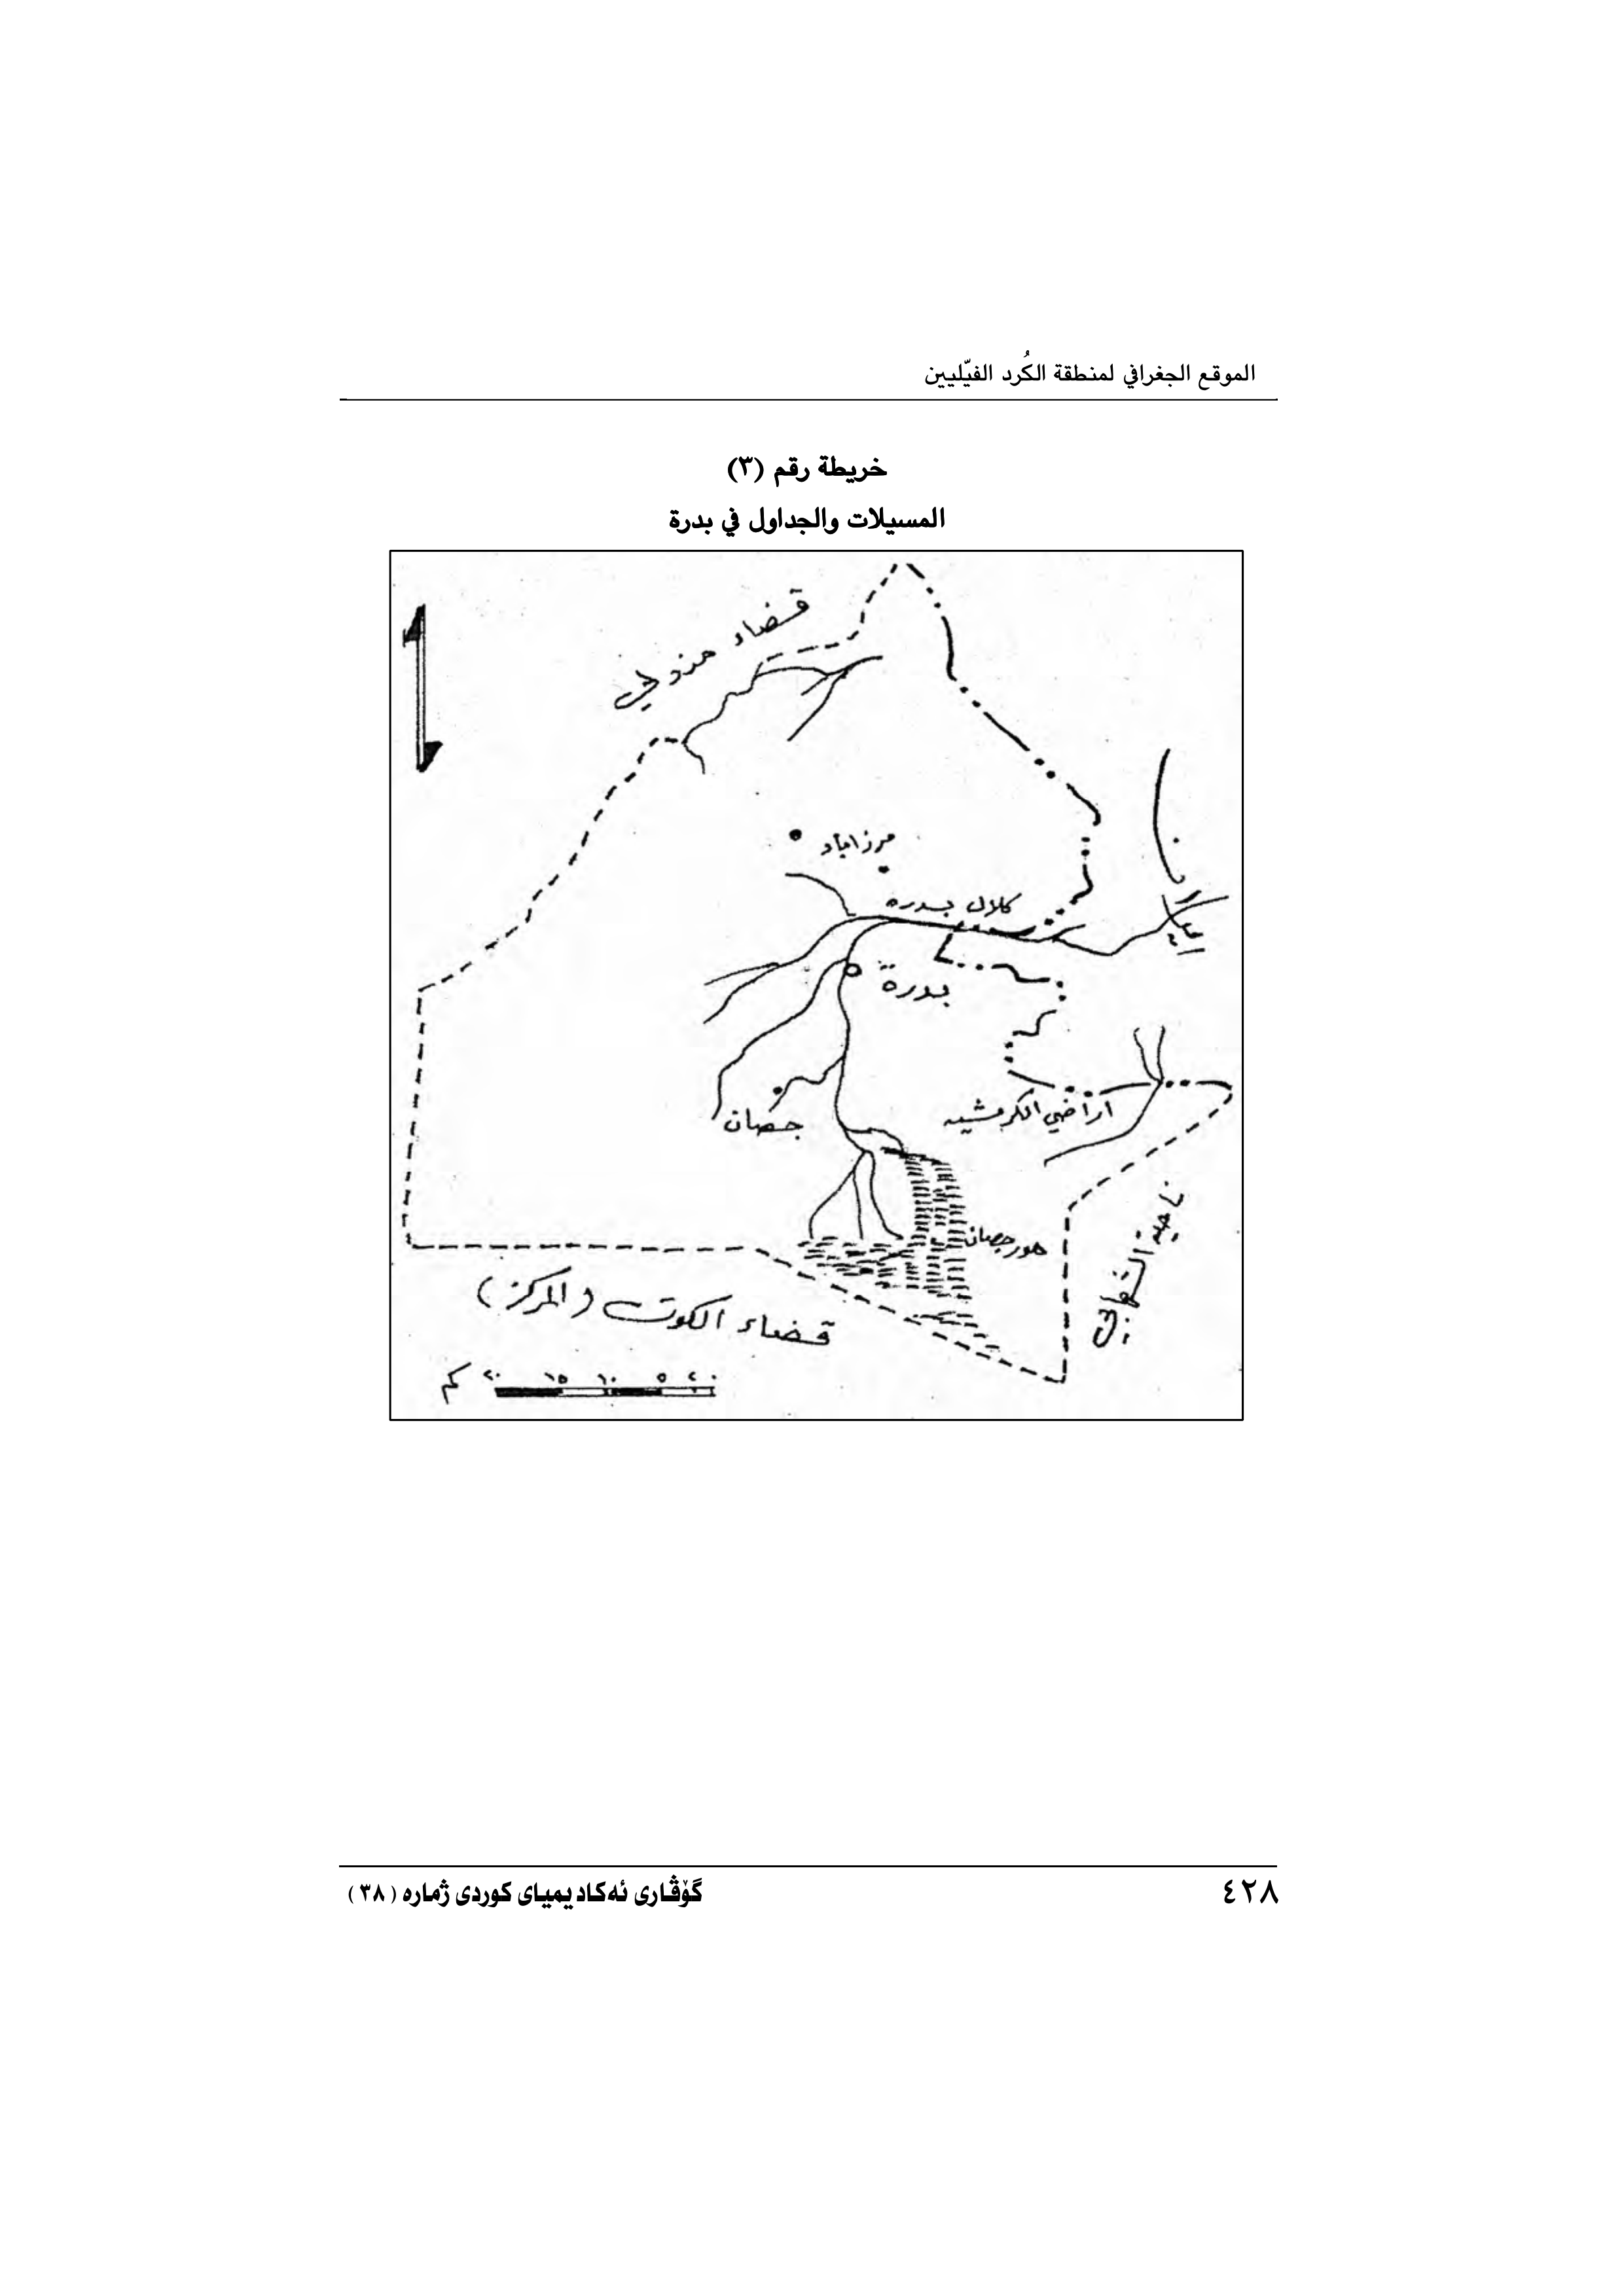 الموقع الجغرافي لمنطقة الكُرد الفيّليين
خريطة رقم (٣)
المسيلات والجداول في بدرة
قضاء مندولي
ميرزاباد
كلال بدره
ايران
بدرة
جصان
اراضي الكرمشيه
هور جصان
ناحية الشهابي
قضاء الكوت (المركز)
كم ٢٠ ١٥ ١٠ ٥ ٢ ٠
٤٢٨
گۆڤاری ئەکادیمیای کوردی ژمارە (٣٨)